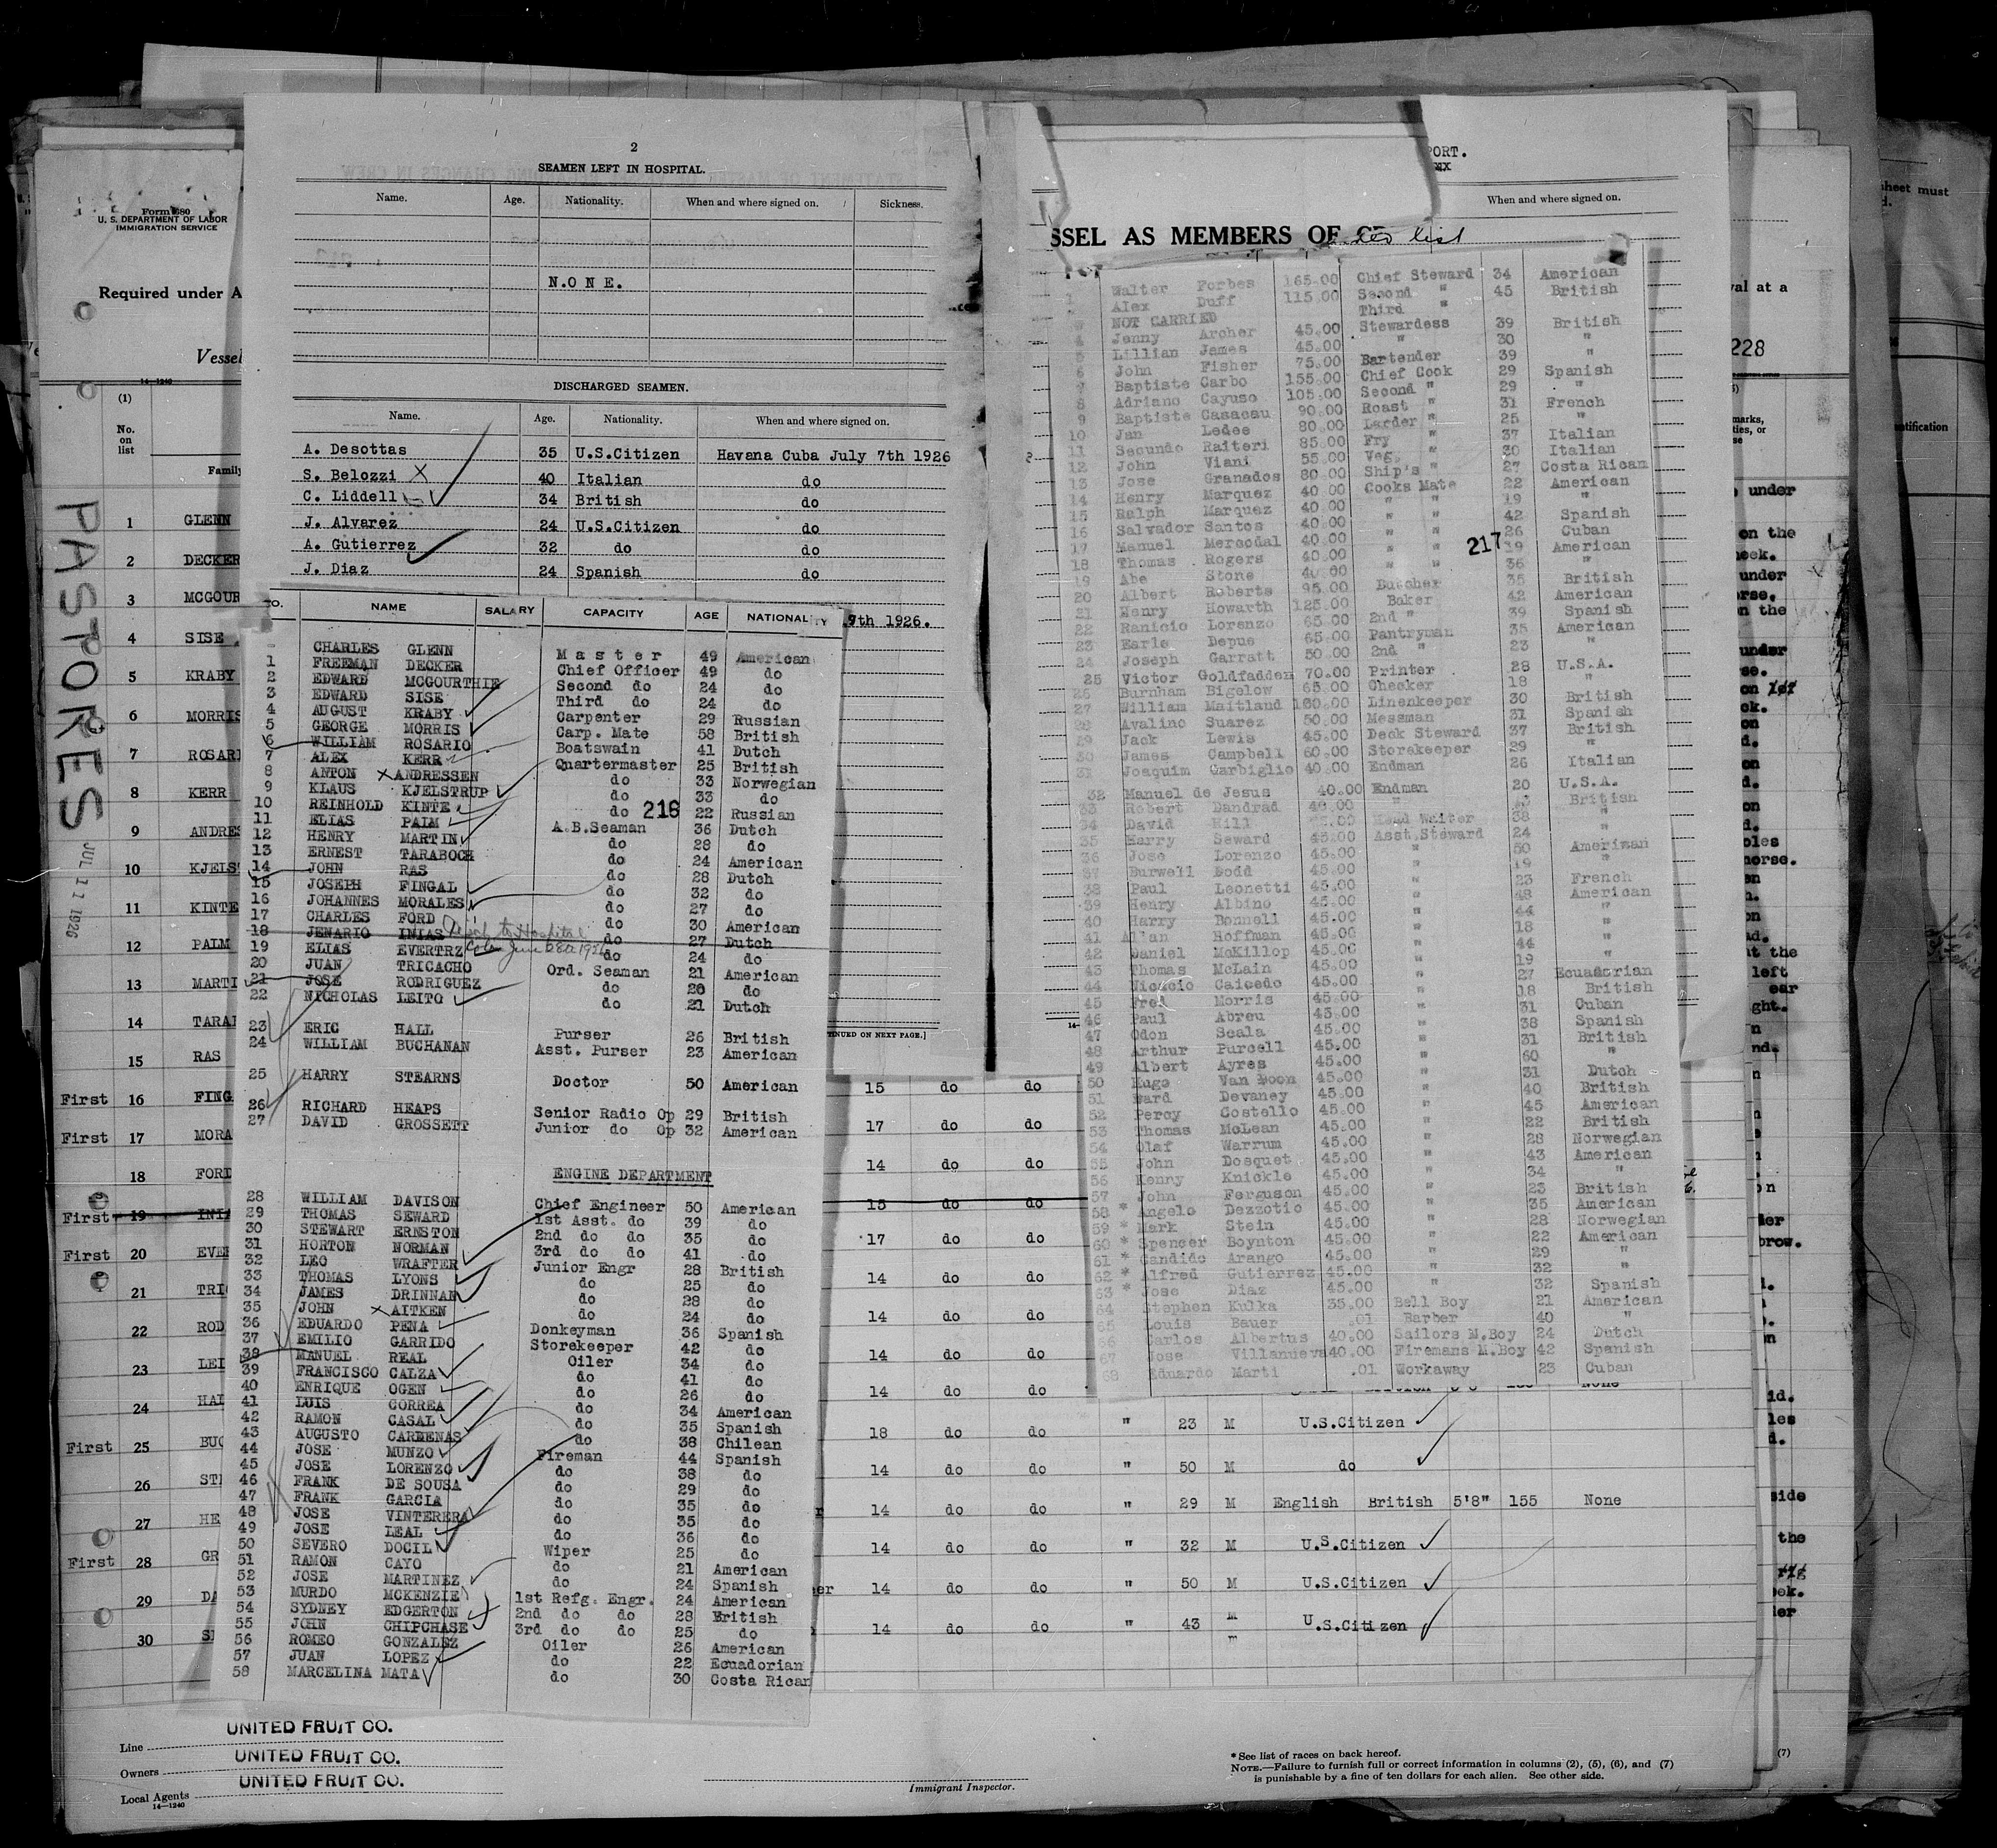 2
SEAMEN LEFT IN HOSPITAL.
Name. Age. Nationality. When and where signed on. Sickness.
N.O N E.
DISCHARGED SEAMEN.
Name. Age. Nationality. When and where signed on.
A. Desottas 35 U.S.Citizen Havana Cuba July 7th 1926
S. Belozzi X 40 Italian do
C. Liddell 34 British do
J. Alvarez 24 U.S.Citizen do
A. Gutierrez 32 do do
J. Diaz 24 Spanish do
9th 1926.
NAME SALARY CAPACITY AGE NATIONALITY
CHARLES GLENN Master 49 American
1 FREEMAN DECKER Chief Officer 49 do
2 EDWARD MCGOURTHIE Second do 24 do
3 EDWARD SISE Third do 24 do
4 AUGUST KRABY Carpenter 29 Russian
5 GEORGE MORRIS Carp. Mate 58 British
6 WILLIAM ROSARIO Boatswain 41 Dutch
7 ALEX KERR Quartermaster 25 British
8 ANTON X ANDRESSEN do 33 Norwegian
9 KLAUS KJELSTRUP do 33 do
10 REINHOLD KINTE do 216 22 Russian
11 ELIAS PALM A.B.Seaman 36 Dutch
12 HENRY MARTIN do 28 do
13 ERNEST TARABOCH do 24 American
14 JOHN RAS do 28 Dutch
15 JOSEPH FINGAL do 32 do
16 JOHANNES MORALES do 27 do
17 CHARLES FORD do 30 American
18 JENARIO INIAS do 27 Dutch
19 ELIAS EVERTRZ do 24 do
20 JUAN TRICACHO Ord. Seaman 21 American
21 JOSE RODRIGUEZ do 20 do
22 NICHOLAS LEITO do 21 Dutch
23 ERIC HALL Purser 26 British
24 WILLIAM BUCHANAN Asst. Purser 23 American
25 HARRY STEARNS Doctor 50 American
26 RICHARD HEAPS Senior Radio Op 29 British
27 DAVID GROSSETT Junior do Op 32 American
ENGINE DEPARTMENT
28 WILLIAM DAVISON Chief Engineer 50 American
29 THOMAS SEWARD 1st Asst. do 39 do
30 STEWART ERNSTON 2nd do do 35 do
31 HORTON NORMAN 3rd do do 41 do
32 LEO WRAFTER Junior Engr 28 British
33 THOMAS LYONS do 25 do
34 JAMES DRINNAN do 28 do
35 JOHN X AITKEN do 24 do
36 EDUARDO PENA Donkeyman 36 Spanish
37 EMILIO GARRIDO Storekeeper 42 do
38 MANUEL REAL Oiler 34 do
39 FRANCISCO CALZA do 41 do
40 ENRIQUE OGEN do 26 do
41 LUIS CORREA do 34 American
42 RAMON CASAL do 35 Spanish
43 AUGUSTO CARDENAS do 38 Chilean
44 JOSE MUNZO Fireman 44 Spanish
45 JOSE LORENZO do 38 do
46 FRANK DE SOUSA do 29 do
47 FRANK GARCIA do 35 do
48 JOSE VINTERERA do 35 do
49 JOSE LEAL do 36 do
50 SEVERO DOCIL Wiper 25 do
51 RAMON CAYO do 21 American
52 JOSE MARTINEZ do 24 Spanish
53 MURDO MCKENZIE 1st Refg. Engr. 24 American
54 SYDNEY EDGERTON 2nd do do 28 British
55 JOHN CHIPCHASE 3rd do do 25 do
56 ROMEO GONZALEZ Oiler 26 American
57 JUAN LOPEZ do 22 Ecuadorian
58 MARCELINA MATA do 30 Costa Rican
PORT.
When and where signed on.
SSEL AS MEMBERS OF
list
1 Walter Forbes 165.00 Chief Steward 34 American
Alex Duff 115.00 Second " 45 British
NOT CARRIED Third "
4 Jenny Archer 45.00 Stewardess 39 British
5 Lillian James 45.00 " 30 "
6 John Fisher 75.00 Bartender 39 "
7 Baptiste Carbo 155.00 Chief Cook 29 Spanish
8 Adriano Cayuso 105.00 Second " 29 "
9 Baptiste Casacau 90.00 Roast " 31 French
10 Jan Ledee 80.00 Larder " 25 "
11 Secundo Raiteri 85.00 Fry " 37 Italian
12 John Viani 55.00 Veg. " 30 Italian
13 Jose Granados 80.00 Ship's " 27 Costa Rican
14 Henry Marquez 40.00 Cooks Mate 22 American
15 Ralph Marquez 40.00 " " 19 "
16 Salvador Santos 40.00 " " 42 Spanish
17 Manuel Mercodal 40.00 " " 26 Cuban
18 Thomas Rogers 40.00 " " 217 39 American
19 Abe Stone 40.00 " " 36 "
20 Albert Roberts 95.00 Butcher 35 British
21 Henry Howarth 125.00 Baker 42 American
22 Ranicio Lorenzo 65.00 2nd " 39 Spanish
23 Earle Depue 65.00 Pantryman 35 American
24 Joseph Garratt 50.00 2nd " 23 "
25 Victor Goldfadden 70.00 Printer 28 U.S.A.
26 Burnham Bigelow 65.00 Checker 18 "
27 William Maitland 160.00 Linenkeeper 30 British
28 Avalino Suarez 50.00 Messman 31 Spanish
29 Jack Lewis 45.00 Deck Steward 37 British
30 James Campbell 60.00 Storekeeper 29 "
31 Joaquim Garbiglio 40.00 Endman 26 Italian
32 Manuel de Jesus 40.00 Endman 20 U.S.A.
33 Robert Dandrad 40.00 " British
34 David Hill Head Waiter 38 "
35 Harry Seward 45.00 Asst.Steward 24 "
36 Jose Lorenzo 45.00 " 50 Ameriman
37 Burwell Dodd 45.00 " 19 "
38 Paul Leonetti 45.00 " 23 French
39 Henry Albino 45.00 " 48 American
40 Harry Bonnell 45.00 " 44 "
41 Allan Hoffman 45.00 " 18 "
42 Daniel McKillop 45.00 " 44 "
43 Thomas McLain 45.00 " 19 "
44 Nicacio Caicedo 45.00 " 27 Ecuadorian
45 Fred Morris 45.00 " 18 British
46 Paul Abreu 45.00 " 31 Cuban
47 Odon Scala 45.00 " 38 Spanish
48 Arthur Purcell 45.00 " 31 British
49 Albert Ayres 45.00 " 60 "
50 Hugo Van Doon 45.00 " 31 Dutch
51 Ward Devaney 45.00 " 40 British
52 Percy Costello 45.00 " 45 American
53 Thomas McLean 45.00 " 22 British
54 Olaf Warrum 45.00 " 28 Norwegian
55 John Dosquet 45.00 " 43 American
56 Kenny Knickle 45.00 " 34 "
57 John Ferguson 45.00 " 23 British
58 * Angelo Dezzotio 45.00 " 35 American
59 * Mark Stein 45.00 " 28 Norwegian
60 * Spencer Boynton 45.00 " 22 American
61 * Candido Arango 45.00 " 29 "
62 * Alfred Gutierrez 45.00 " 32 "
63 * Jose Diaz 45.00 " 32 Spanish
64 Stephen Kulka 35.00 Bell Boy 21 American
65 Louis Bauer .01 Barber 40 "
66 Carlos Albertus 40.00 Sailors M.Boy 24 Dutch
67 Jose Villanueva 40.00 Firemans M.Boy 42 Spanish
68 Eduardo Marti .01 Workaway 23 Cuban
Form 680
U. S. DEPARTMENT OF LABOR
IMMIGRATION SERVICE
Required under A
Vessel
14—1240
(1)
No. on list
Family
PASPORES
JUL 11 1926
1 GLENN
2 DECKER
3 MCGOUR
4 SISE
5 KRABY
6 MORRIS
7 ROSARI
8 KERR
9 ANDRES
10 KJELS
11 KINTE
12 PALM
13 MARTI
14 TARA
15 RAS
First 16 FING 15 do do
First 17 MORA 17 do do
18 FORD 14 do do
First 19 INI 15 do do
First 20 EVE 17 do do
21 TRI 14 do do
22 ROD 14 do do
23 LEI 14 do do
24 HAL 14 do do None
First 25 BUC 18 do do " 23 M U.S.Citizen
26 ST 14 do do " 50 M do
27 HE 14 do do " 29 M English British 5'8" 155 None
First 28 GR 14 do do " 32 M U.S.Citizen
29 DA 14 do do " 50 M U.S.Citizen
30 14 do do " 43 M U.S.Citizen
TINUED ON NEXT PAGE.]
sheet must
val at a
228
Line UNITED FRUIT CO.
Owners UNITED FRUIT CO.
Local Agents UNITED FRUIT CO.
14—1240
Immigrant Inspector.
* See list of races on back hereof.
NOTE.—Failure to furnish full or correct information in columns (2), (5), (6), and (7)
is punishable by a fine of ten dollars for each alien. See other side.
(7)